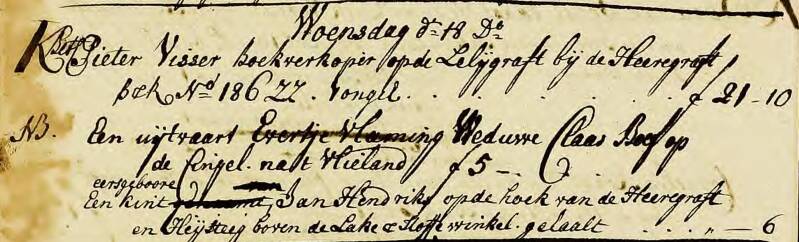 Woensdag d: 18 Do
K Bett Pieter Visser boekverkoper op de Lelijgraft bij de Heeregraft
bek No 186 22. Tongel . . . . . . . . f 21-10
NB. Een uijtvaart Evertje Vlaming Weduwe Claas Boef op
de Cingel. nast Vlieland f 5 -
eersgeboore
Een kint Jan Hendriks op de hoek van de Heeregraft
en Heijsteig boven de Lake & Stoffe winkel. gelaalt . . . . „ - 6